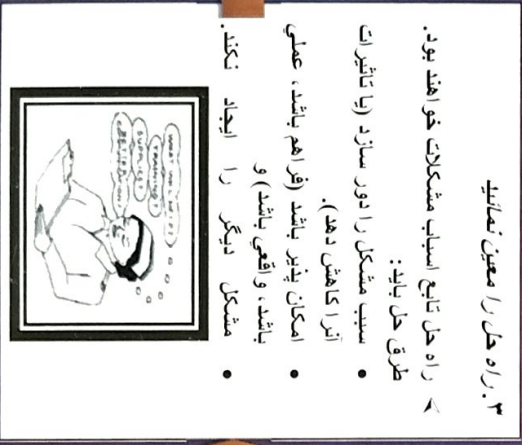 ۳. راه حل را معین نمائید
➢ راه حل تابع اسباب مشکلات خواهند بود.
طرق حل باید:
• سبب مشکل را دور سازد (یا تاثیرات
آنرا کاهش دهد).
• امکان پذیر باشد (فراهم باشد، عملی
باشد، واقعی باشد) و
• مشکل دیگر را ایجاد نکند.
TRAINING?
SUPPLIES?